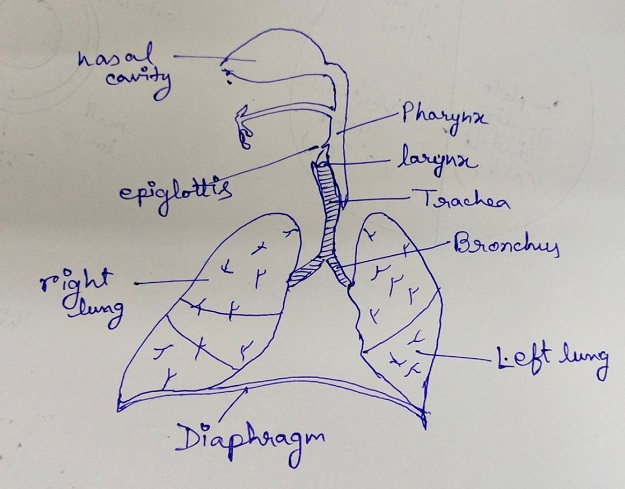 nasal
cavity
Pharynx
larynx
epiglottis
Trachea
Bronchus
right
lung
Left lung
Diaphragm